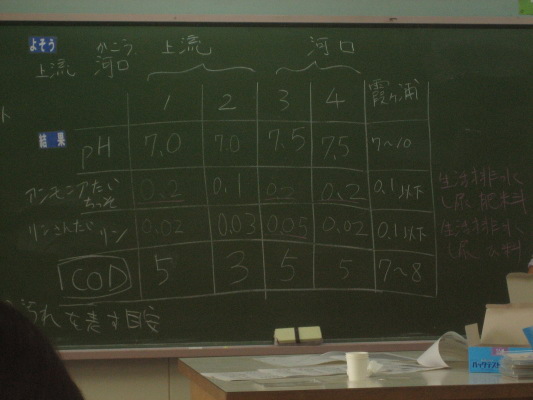 よそう かこう 上流 河口
上流 河口
1 2 3 4 霞ヶ浦
結果 pH 7.0 7.0 7.5 7.5 7〜10
アンモニアたい 0.2 0.1 0.2 0.2 0.1以下 生活排水
ちっそ し尿 肥料
リンさんたい リン 0.02 0.03 0.05 0.02 0.1以下 生活排水
し尿
COD 5 3 5 5 7〜8
よごれを表す目安
パックテスト